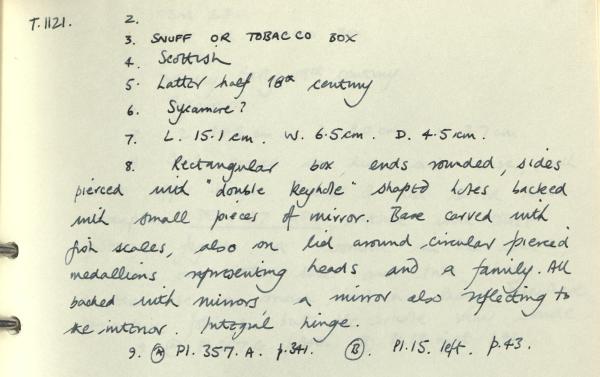 T.1121. 2.
3. SNUFF OR TOBACCO BOX
4. Scottish
5. Latter half 18th century
6. Sycamore?
7. L. 15.1 cm. W. 6.5 cm. D. 4.5 cm.
8. Rectangular box, ends rounded, sides
pierced with "double keyhole" shaped holes backed
with small pieces of mirror. Base carved with
fish scales, also on lid around circular pierced
medallions representing heads and a family. All
backed with mirrors, a mirror also reflecting to
the interior. Integral hinge.
9. (A) Pl. 357. A. p.341. (B). Pl. 15. left. p.43.